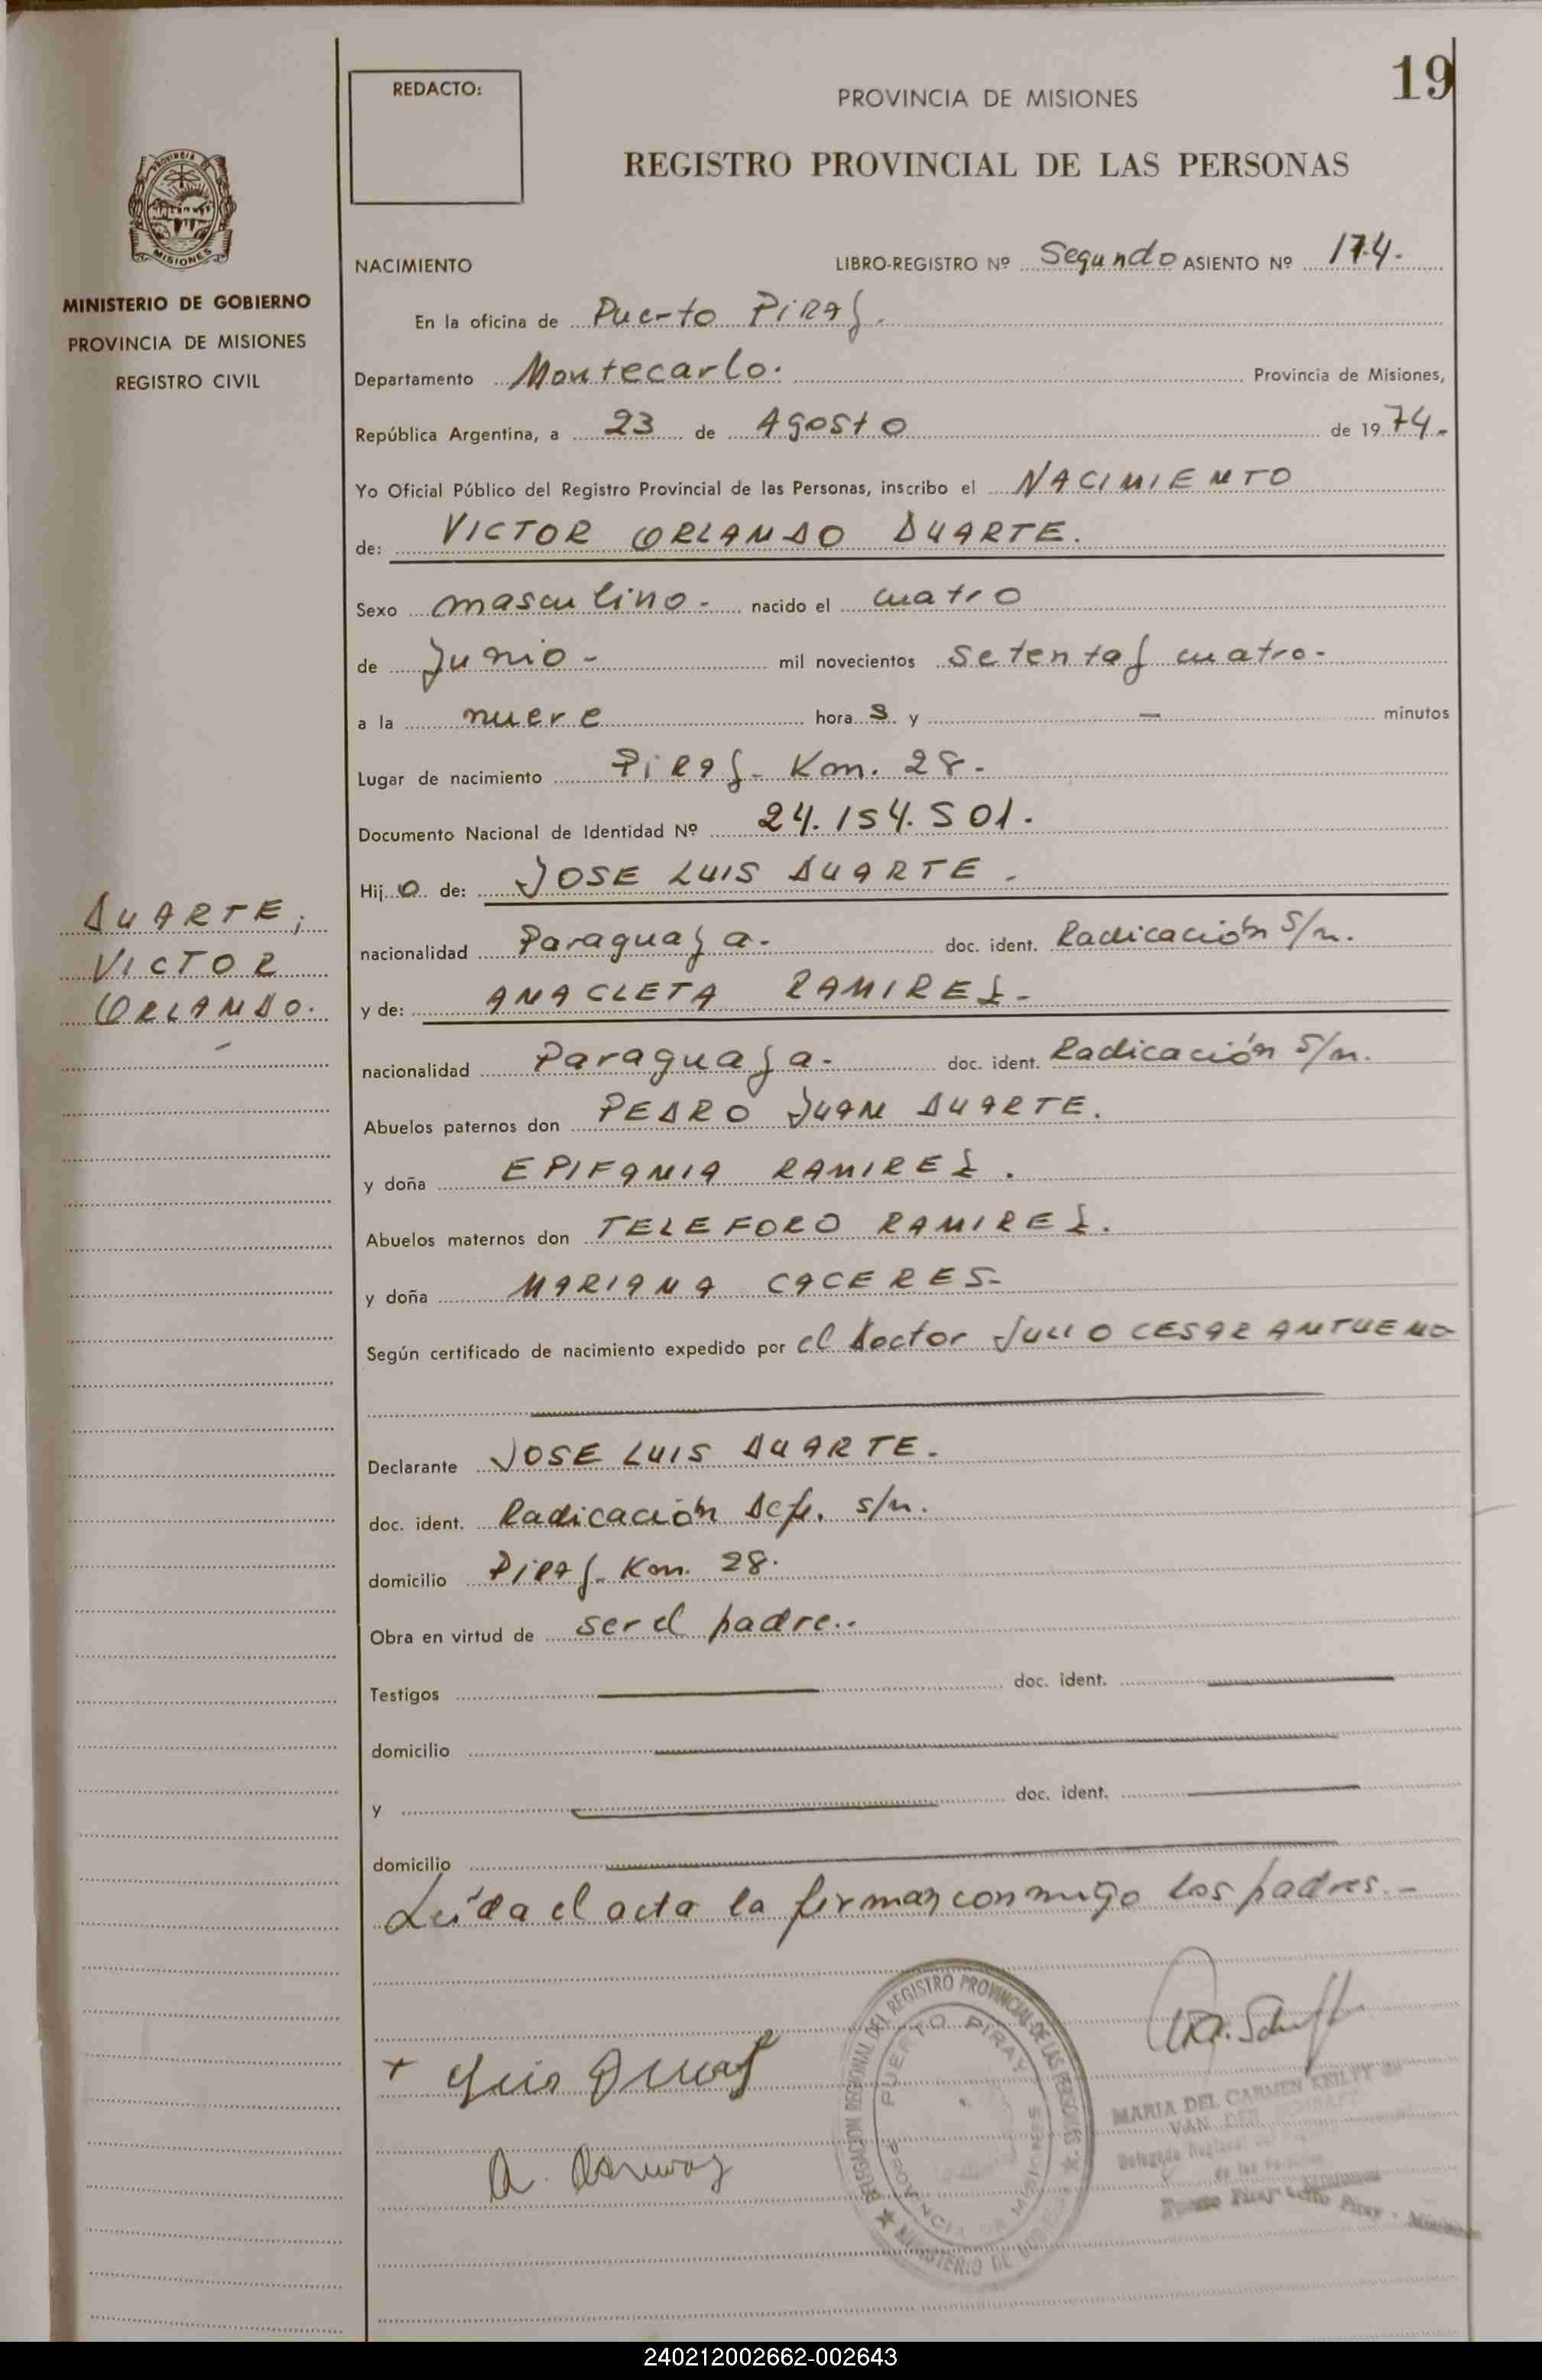 19
REDACTO:
PROVINCIA DE MISIONES
REGISTRO PROVINCIAL DE LAS PERSONAS
PROVINCIA DE
MISIONES
MINISTERIO DE GOBIERNO
PROVINCIA DE MISIONES
REGISTRO CIVIL
NACIMIENTO LIBRO-REGISTRO Nº Segundo ASIENTO Nº 174.
En la oficina de Puerto Piray.
Departamento Montecarlo. Provincia de Misiones,
República Argentina, a 23 de Agosto de 1974.-
Yo Oficial Público del Registro Provincial de las Personas, inscribo el NACIMIENTO
de: VICTOR ORLANDO DUARTE.
Sexo masculino.- nacido el cuatro
de Junio - mil novecientos setenta y cuatro.-
a la nueve hora s y — minutos
Lugar de nacimiento Piray- Km. 28.-
Documento Nacional de Identidad Nº 24.154.501.
Hij o de: JOSE LUIS DUARTE.
nacionalidad Paraguaya.- doc. ident. Radicación s/n.
y de: ANACLETA RAMIREZ-
nacionalidad Paraguaya.- doc. ident. Radicación s/n.
Abuelos paternos don PEDRO JUAN DUARTE.
y doña EPIFANIA RAMIREZ.
Abuelos maternos don TELEFORO RAMIREZ.
y doña MARIANA CACERES-
Según certificado de nacimiento expedido por el doctor JULIO CESAR ANTUENO
Declarante JOSE LUIS DUARTE.
doc. ident. Radicación s/n.
domicilio Piray- Km. 28.
Obra en virtud de ser el padre..
Testigos doc. ident.
domicilio
y doc. ident.
domicilio
Leída el acta la firman conmigo los padres.-
DUARTE,
VICTOR
ORLANDO.
-
DELEGACION REGIONAL DEL REGISTRO PROVINCIAL DE LAS PERSONAS
PUERTO PIRAY
PROVINCIA DE MISIONES
MINISTERIO DE GOBIERNO
MARIA DEL CARMEN KEILTY de
VAN DER
Delegada Regional del
de las Personas
Piray - Misiones
240212002662-002643